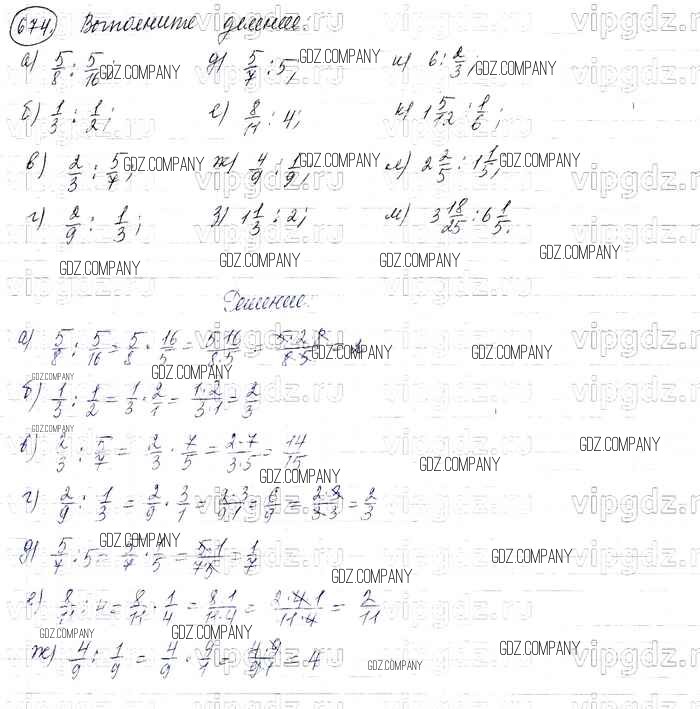 674. Выполните деление:
а) 5/8 : 5/16; д) 5/7 : 5; и) 6 : 2/3;
б) 1/3 : 1/2; е) 8/11 : 4; к) 1 5/12 : 1/6;
в) 2/3 : 5/7; ж) 4/9 : 1/9; л) 2 2/5 : 1 1/5;
г) 2/9 : 1/3; з) 1 1/3 : 2; м) 3 18/25 : 6 1/5.
Решение:
а) 5/8 : 5/16 = 5/8 · 16/5 = 5·16/8·5 = 5·2·8/8·5 =
б) 1/3 : 1/2 = 1/3 · 2/1 = 1·2/3·1 = 2/3
в) 2/3 : 5/7 = 2/3 · 7/5 = 2·7/3·5 = 14/15
г) 2/9 : 1/3 = 2/9 · 3/1 = 2·3/9·1 = 6/9 = 2·3/3·3 = 2/3
д) 5/7 : 5 = 5/7 · 1/5 = 5·1/7·5 = 1/7
е) 8/11 : 4 = 8/11 · 1/4 = 8·1/11·4 = 2·4·1/11·4 = 2/11
ж) 4/9 : 1/9 = 4/9 · 9/1 = 4·9/9·1 = 4
GDZ.COMPANY
vipgdz.ru